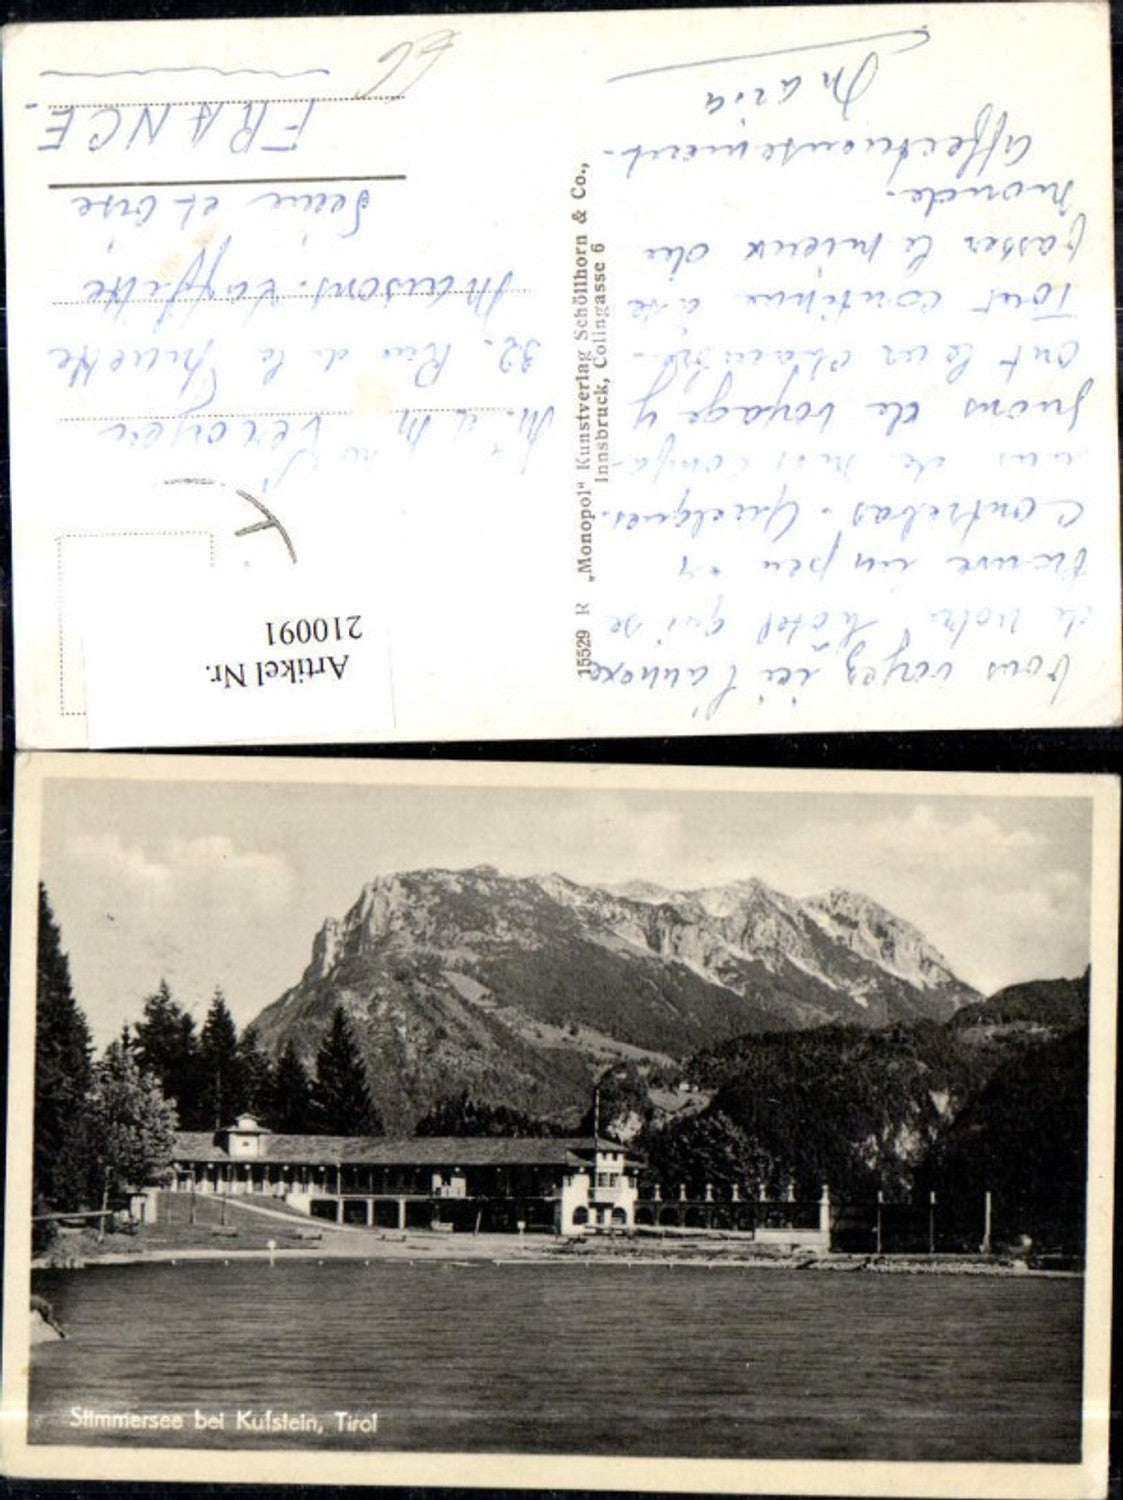 Vous voyez ici l'annexe
de notre hôtel qui se
trouve un peu
contrebas. Quelques
uns de nos compa-
gnons de voyage y
ont leur chambre.
Tout continue à se
passer le mieux du
monde.
Affectueusement.
Maria
15529 R „Monopol" Kunstverlag Schöllhorn & Co.,
Innsbruck, Colingasse 6
Artikel Nr.
210091
M. et Mme
32. Rue de la Muette
Maisons-Laffitte
Seine et Oise
FRANCE.
Stimmersee bei Kufstein, Tirol